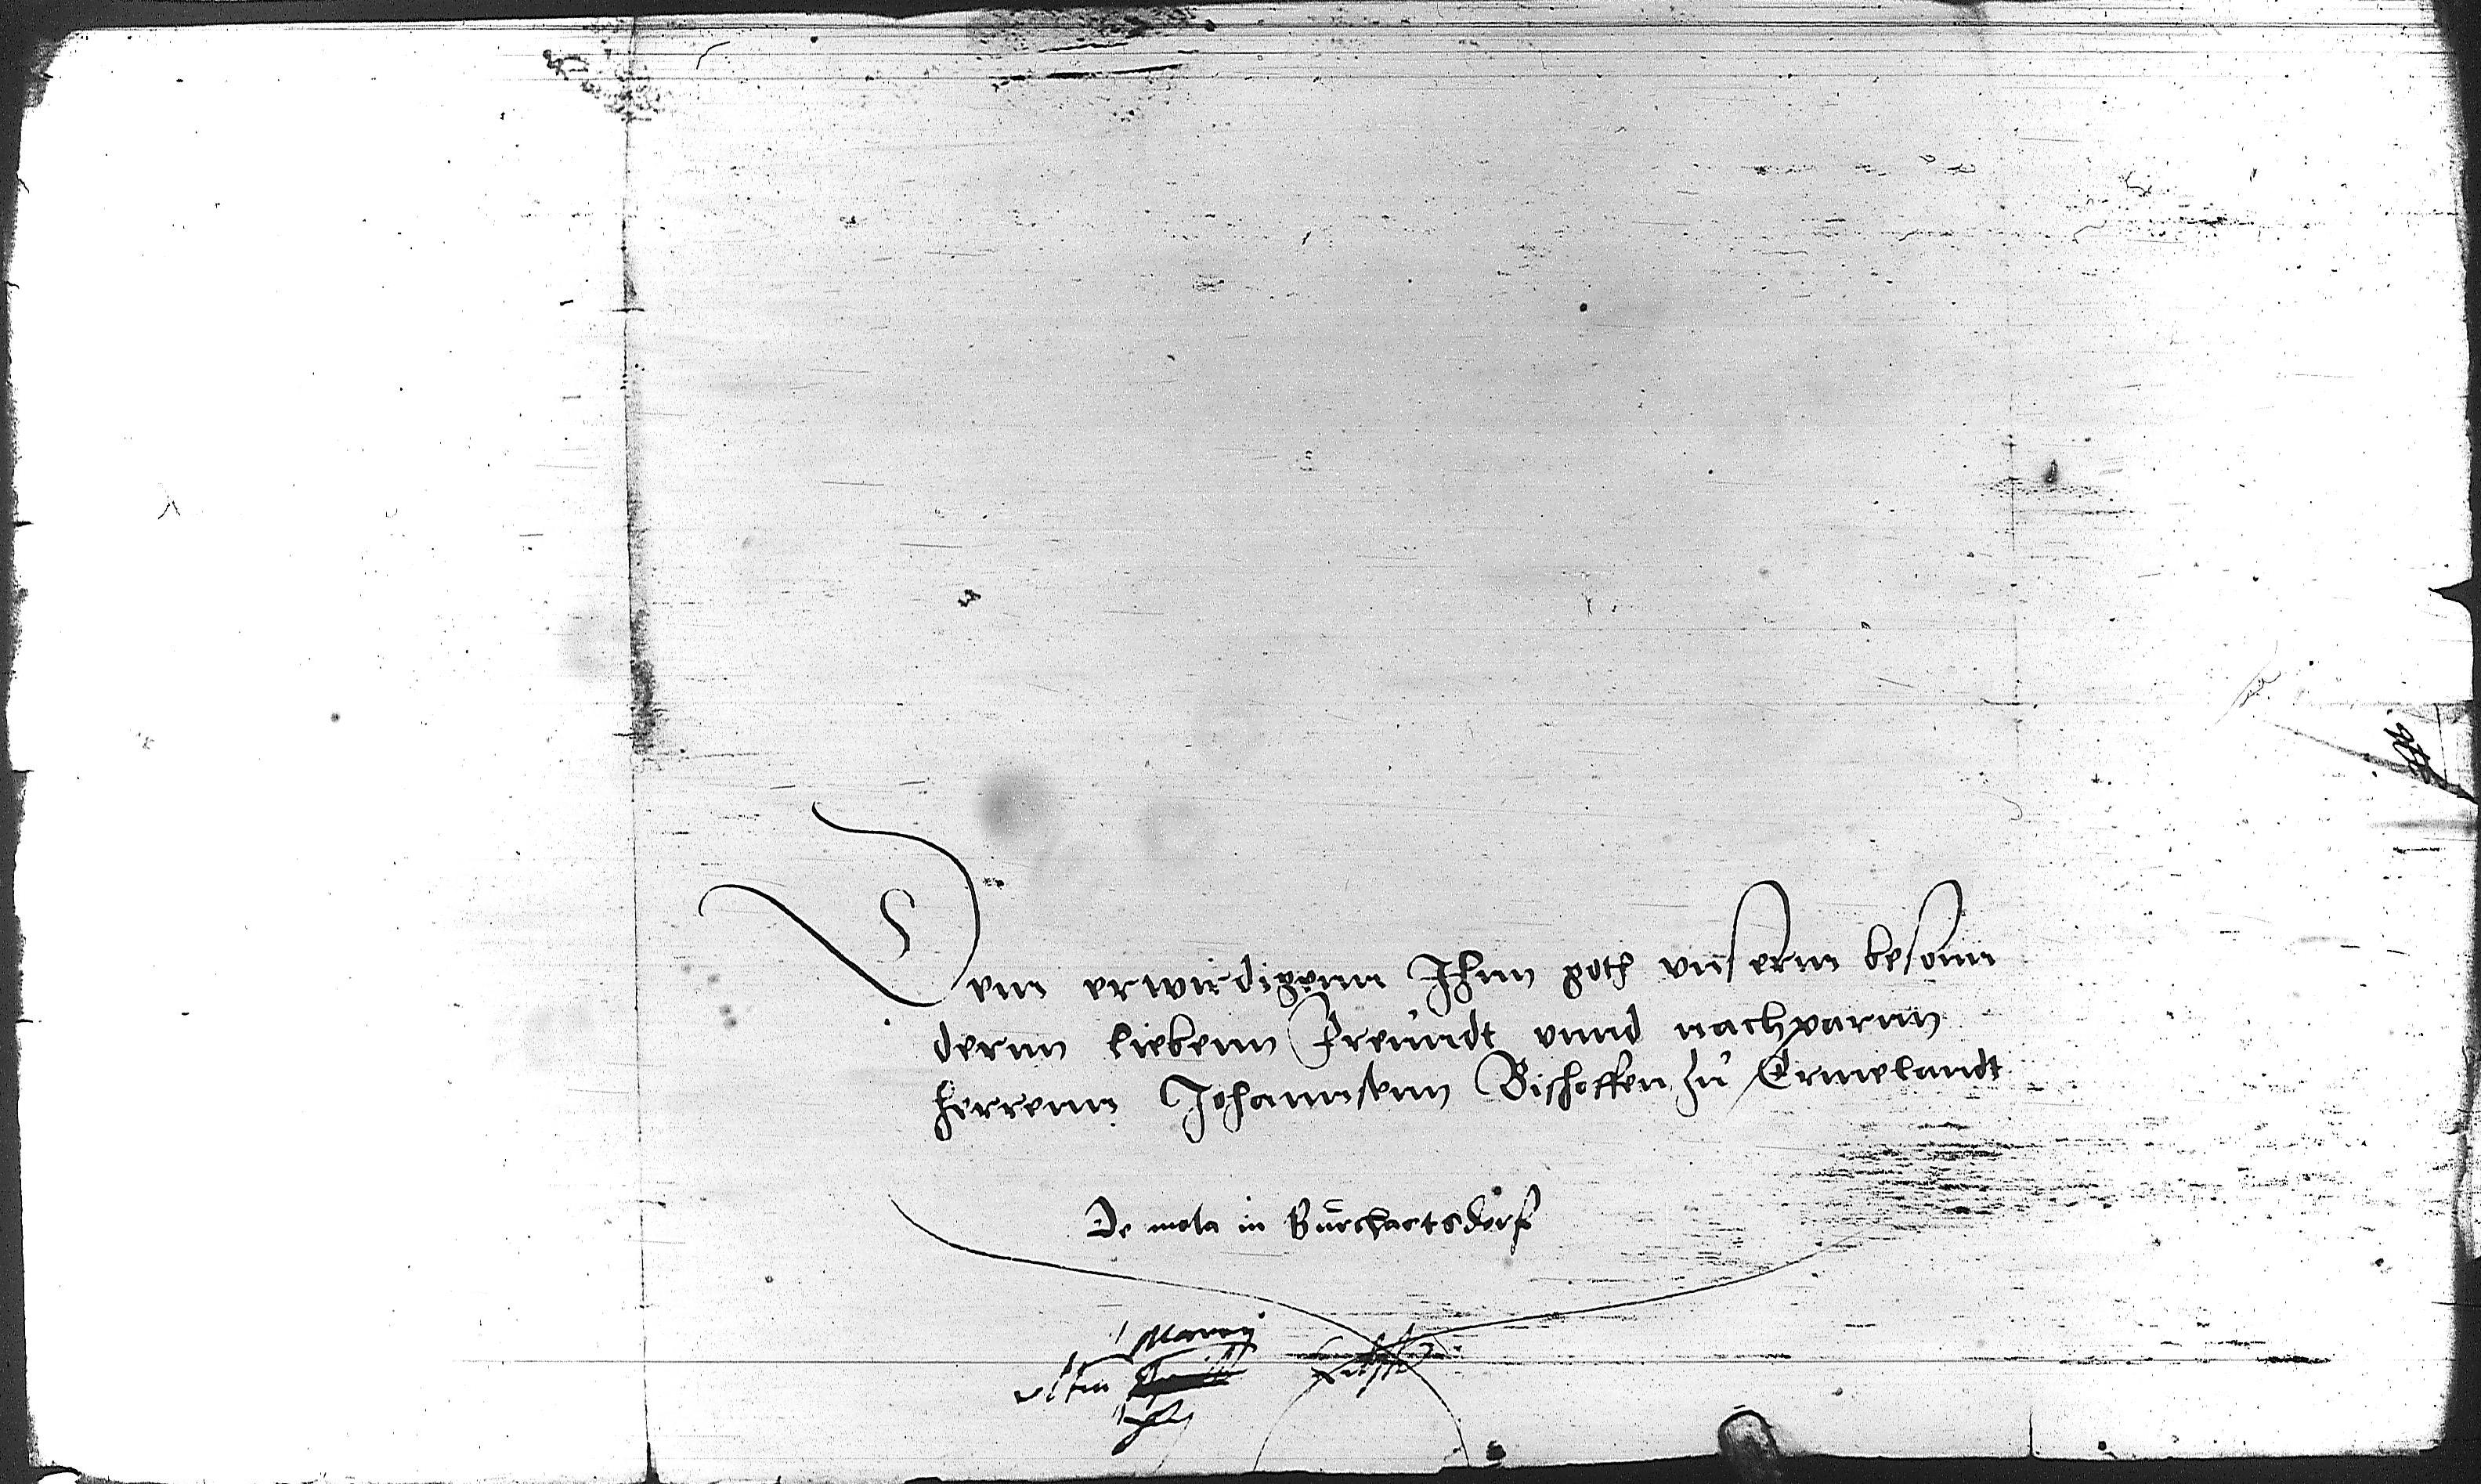 Dem erwirdigenn Ihnn goth vnserm besonn
dernn liebenn Freundt vnnd nachparnn
herrenn Johannsenn Bischoffen zu Ermelandt
De mola in Burchartsdorf